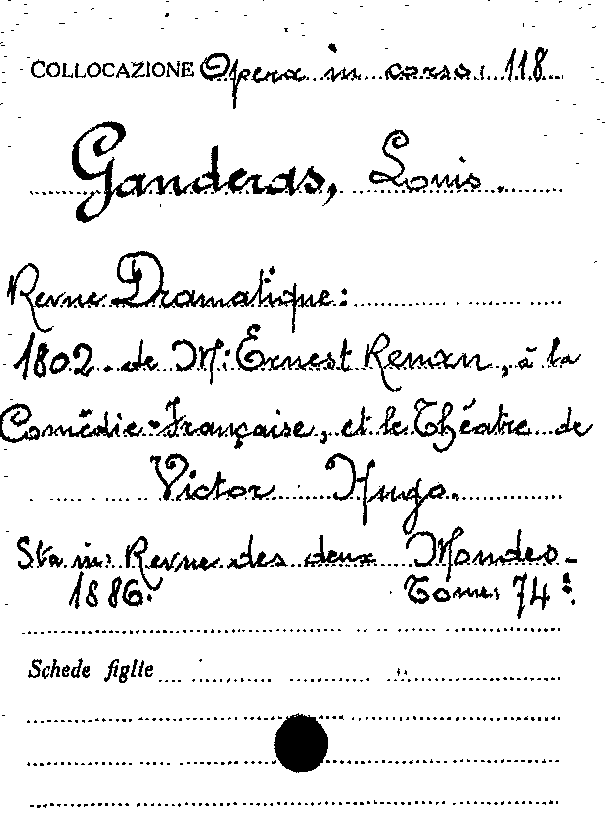 COLLOCAZIONE Opera in corso: 118
Ganderas, Louis.
Revue Dramatique:
1802. de M: Ernest Renan, à la
Comédie-Française, et le Théatre de
Victor Hugo.
Sta in: Revue des deux Mondes-
1886. Tome: 74:
Schede figlie